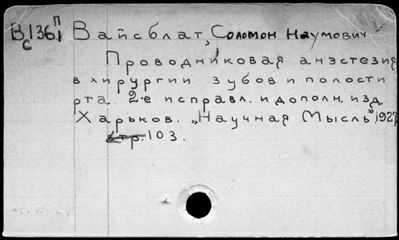 В 136 П Вайсблат, Соломон Наумович
с 1
Проводниковая анэстезия
в хирургии зубов и полости
рта. 2-е исправл. и дополн. изд.
Харьков. „Научная Мысль" 1927
стр. 103.